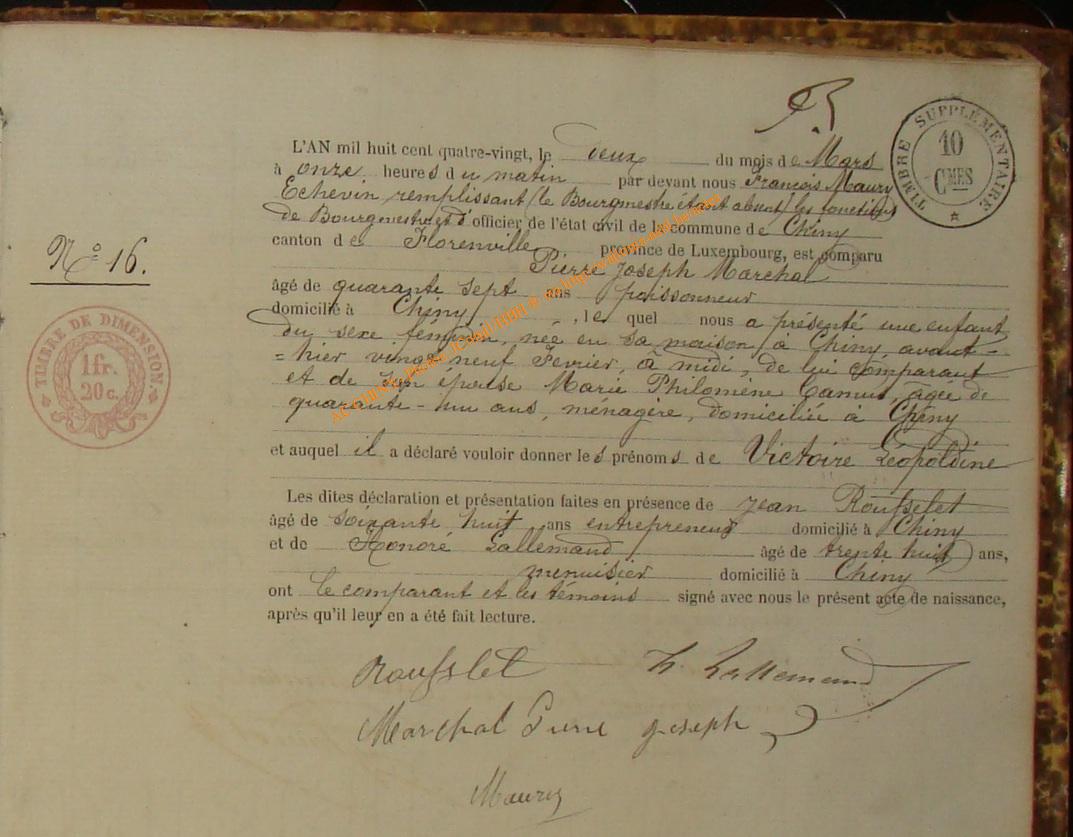 B.
TIMBRE SUPPLÉMENTAIRE
10
CMES
L'AN mil huit cent quatre-vingt, le deux du mois de Mars
à onze heures du matin par devant nous François Maury
Echevin remplissant (le Bourgmestre étant absent) les fonctions
de Bourgmestre et d'officier de l'état civil de la commune de Chiny
canton de Florenville province de Luxembourg, est comparu
Pierre Joseph Marchal
âgé de quarante sept ans poissonneur
domicilié à Chiny, lequel nous a présenté une enfant
du sexe féminin, née en sa maison à Chiny, avant-
=hier vingt neuf Fevrier, à midi, de lui comparant
et de son épouse Marie Philomène Camus, âgée de
quarante-un ans, ménagère, domiciliée à Chiny
et auquel il a déclaré vouloir donner les prénoms de Victoire Léopoldine
Les dites déclaration et présentation faites en présence de Jean Rousselet
âgé de soixante huit ans entrepreneur domicilié à Chiny
et de Honoré Lallemand âgé de trente huit ans,
menuisier domicilié à Chiny
ont le comparant et les témoins signé avec nous le présent acte de naissance,
après qu'il leur en a été fait lecture.
N° 16.
TIMBRE DE DIMENSION.
1 fr.
20 c.
Rousslet H. Lallemand
Marchal Pierre joseph
Maury